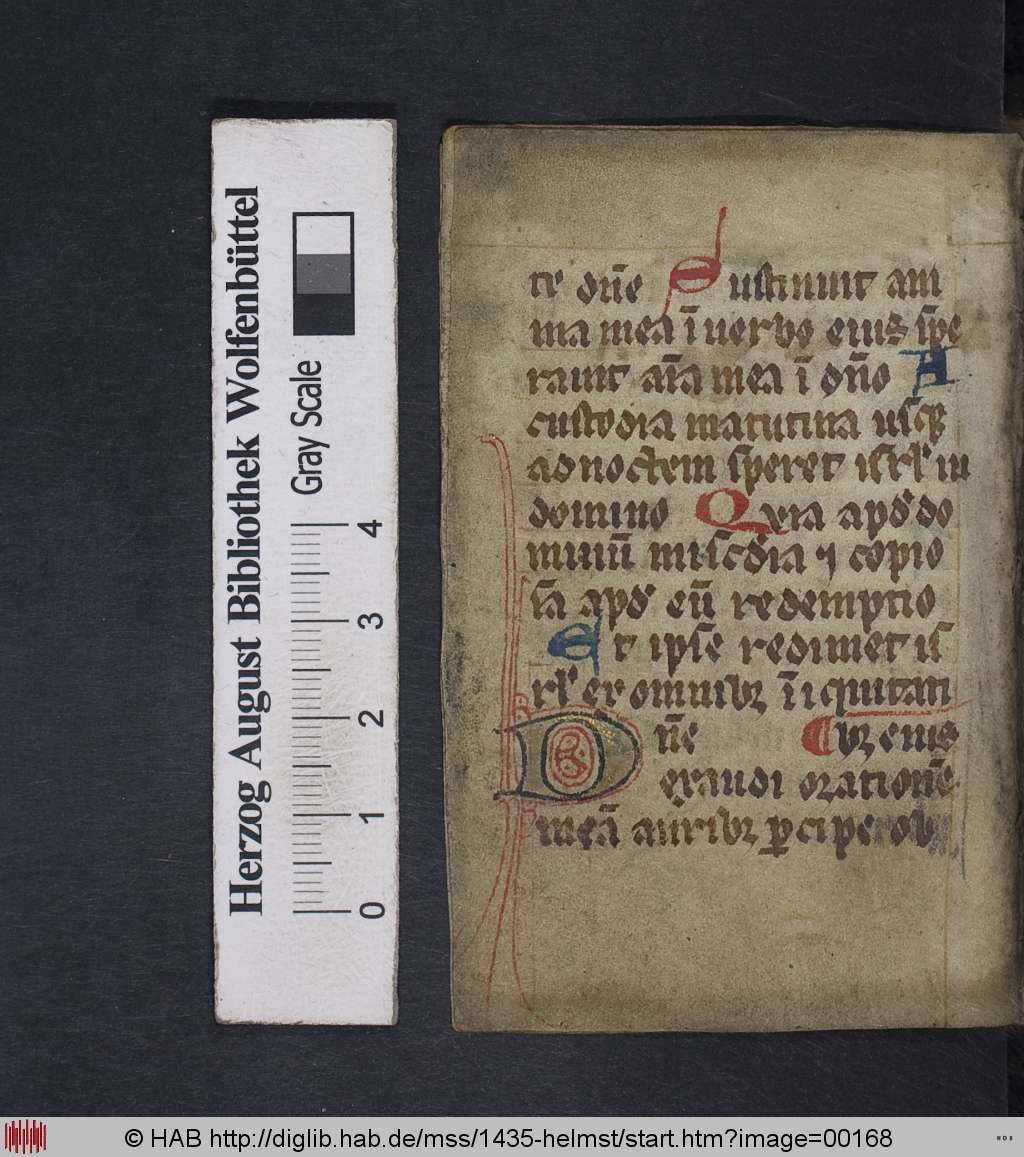 Herzog August Bibliothek Wolfenbüttel
Gray Scale
4
3
2
1
0
te dñe Sustinuit ani
ma mea ĩ uerbo eius spe
rauit aĩa mea ĩ dño A
custodia matutina usq
ad noctem speret isrl in
domino Quia apd do
minũ miscdia ⁊ copio
sa apd eũ redemptio
Et ipse redimet is
rl ex omnibꝫ ĩiquitati
Dñe bꝫ eius
exaudi orationẽ
meã auribꝫ ꝑcipe ob
© HAB http://diglib.hab.de/mss/1435-helmst/start.htm?image=00168